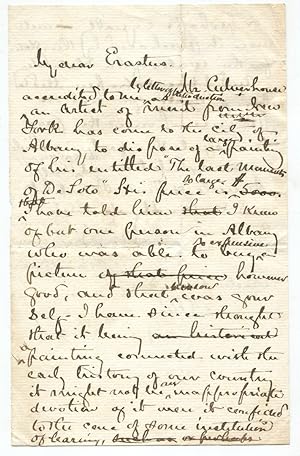 My dear Erastus.
by letter of introduction
Mr Culverhouse
accredited to me as
an artist of merit from New
York has come to the City of
Albany to dispose of a large painting
of his entitled "The last Moments
of De Soto" His price is
I have told him that I knew
of but one person in Albany
who was able to buy so expensive
picture of that price however
good, and that person was your
self - I have since thought
that it being an historical
painting connected with the
early history of our country
it might not be an inappropriate
devotion of it were it confided
to the care of some institution
of learning, such as or perhaps